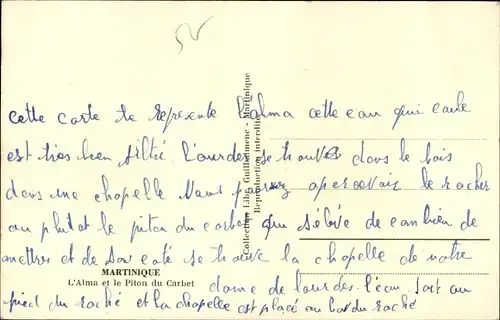 cette carte te represente l'alma cette eau qui coule
est tres bien filtré. Lourdes se trouve dans le bois
dans une chapelle Vous pouvez apercevoir le rocher
ou plutot le piton du carbet qui s'élève de combien de
mettres et de son coté se trouve la chapelle de notre
MARTINIQUE
L'Alma et le Piton du Carbet
dame de lourdes. l'eau sort au
pied du roché et la chapelle est placé au bas du roché
Collection Libia Guillaumenc - Martinique
Reproduction interdite